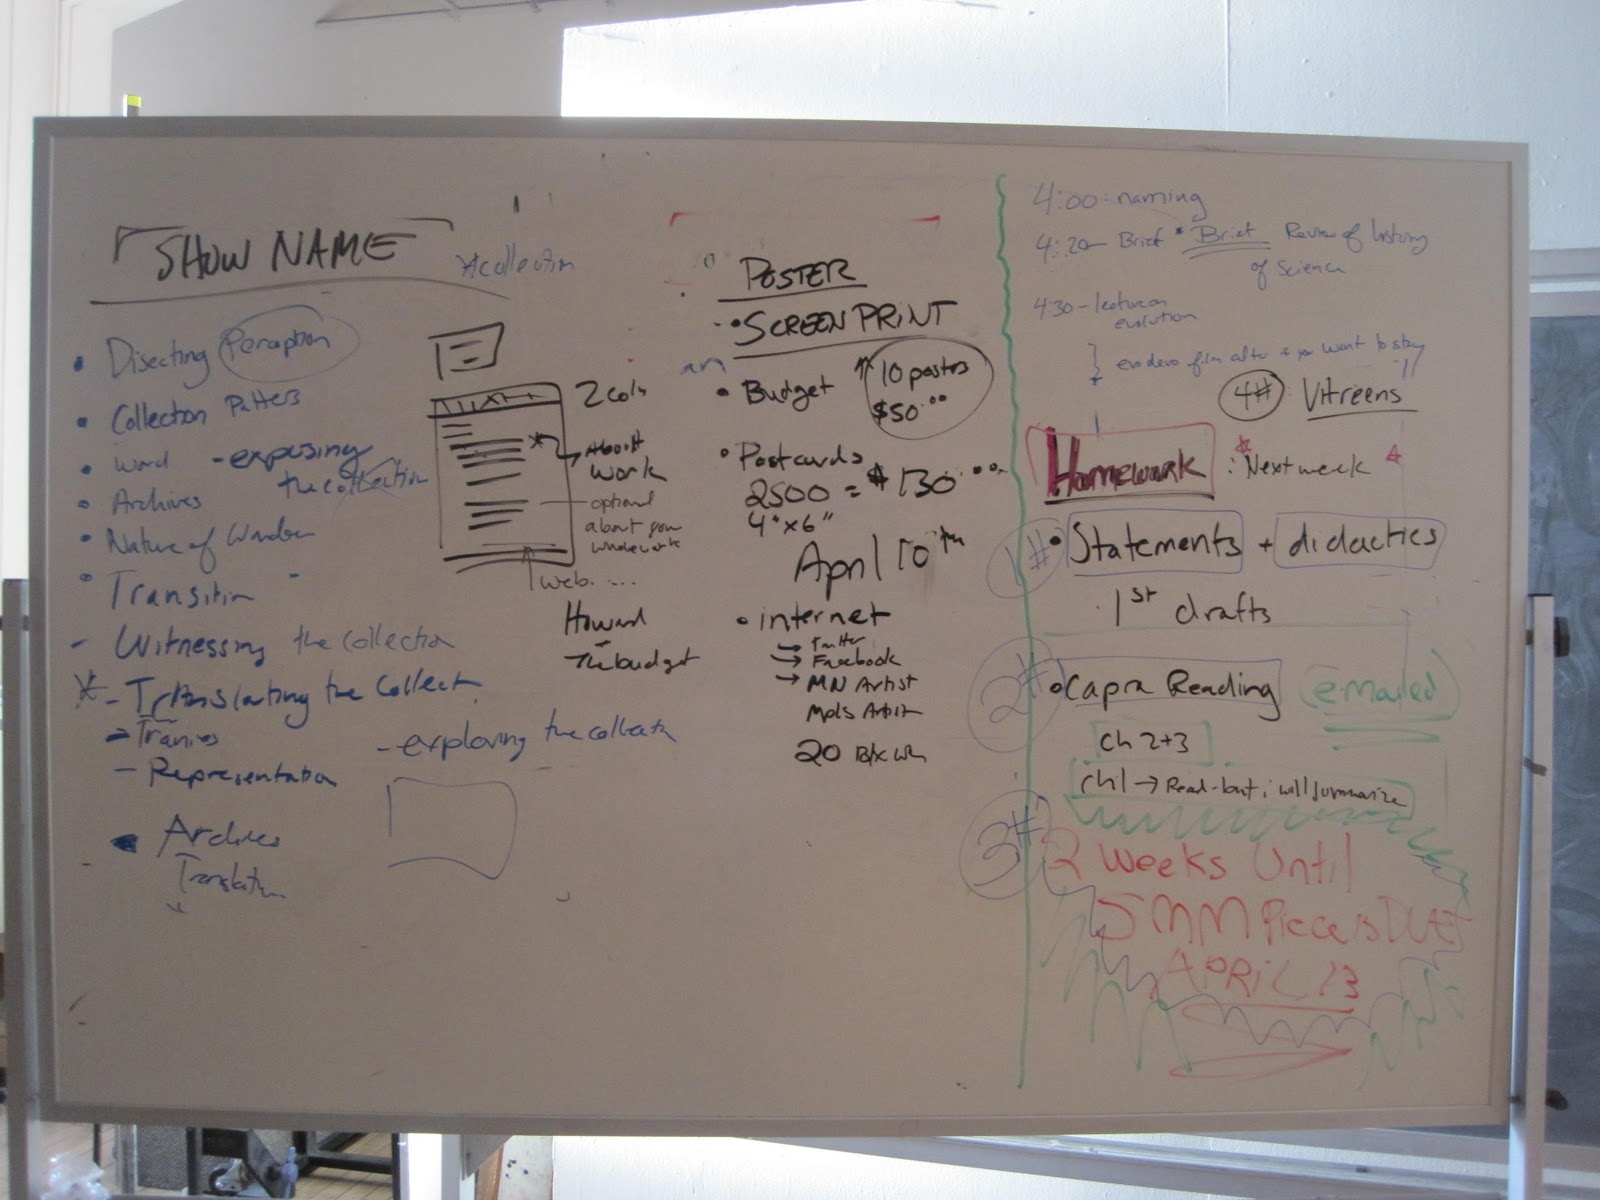 SHOW NAME
*collection
• Disecting Perception
• Collection Patters
• Word - exposing
the collection
• Archives
• Nature of Wonder
• Transition
- Witnessing the collection
* - Translating the Collect
- Representation
- exploring the collectn
• Archives
Translatn
2 cols
About
Work
optional
about your
web....
Howard
The budget
POSTER
• SCREEN PRINT
• Budget
10 posters
$50.00
• Postcards
2500 = $130.00
4" x 6"
April 10th
• internet
→ Twitter
→ Facebook
→ MN Artist
Mpls Artist
20
4:00 - naming
4:20 - Brief * Brief Review of history
of Science
4:30 - lecture on
evolution
evo devo film after if you want to stay
4# Vitreens
Homework : * Next week *
1# • Statements + didactics
1st drafts
2# • Capra Reading (emailed)
Ch 2+3
Ch 1 → Read - but i will summarize
3# 2 weeks Until
SMM Piece is DUE
APRIL 13